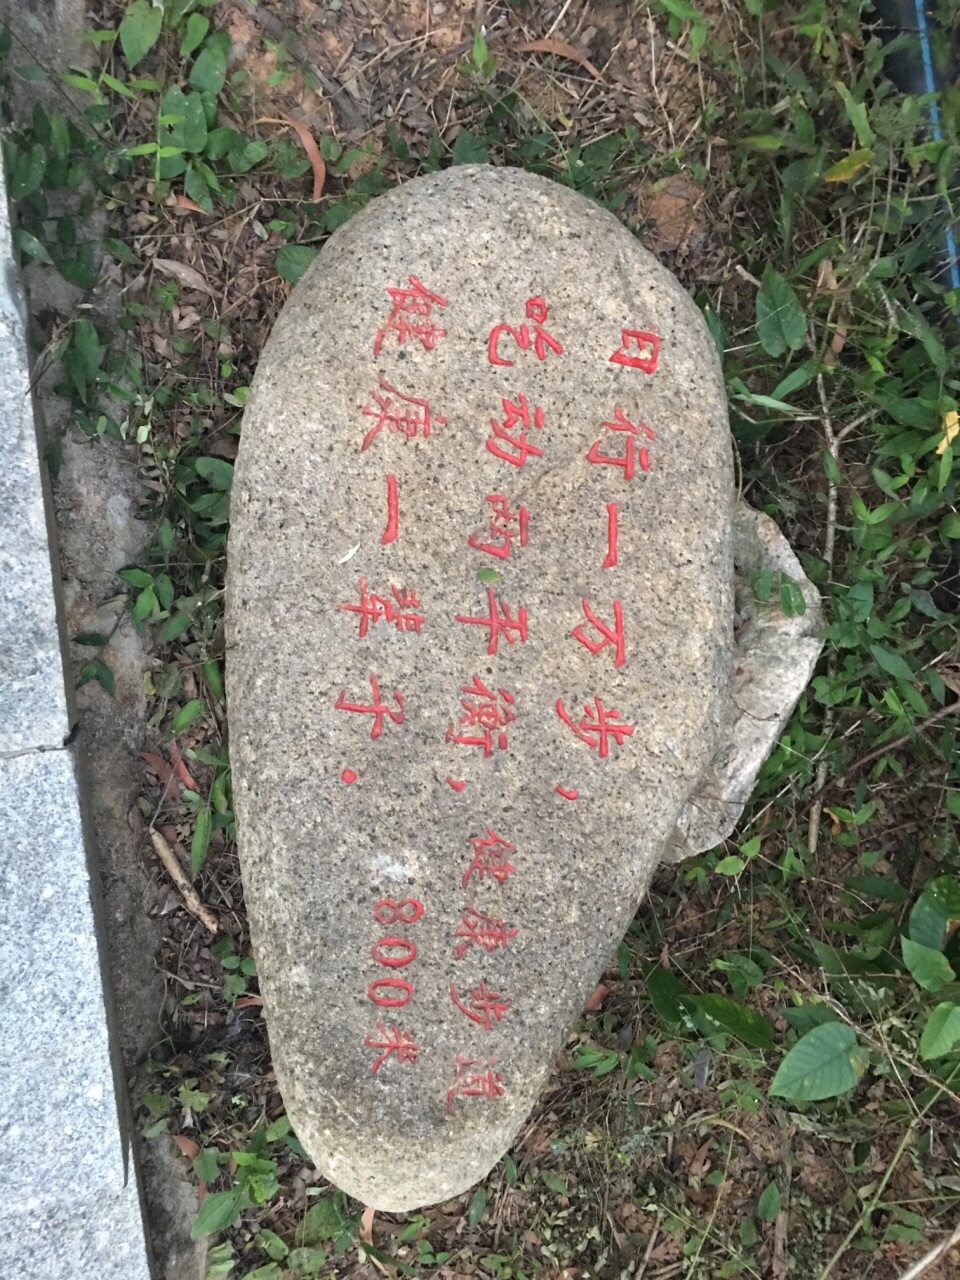 日行一万步，
吃动两平衡，
健康一辈子．
健康步道
800米